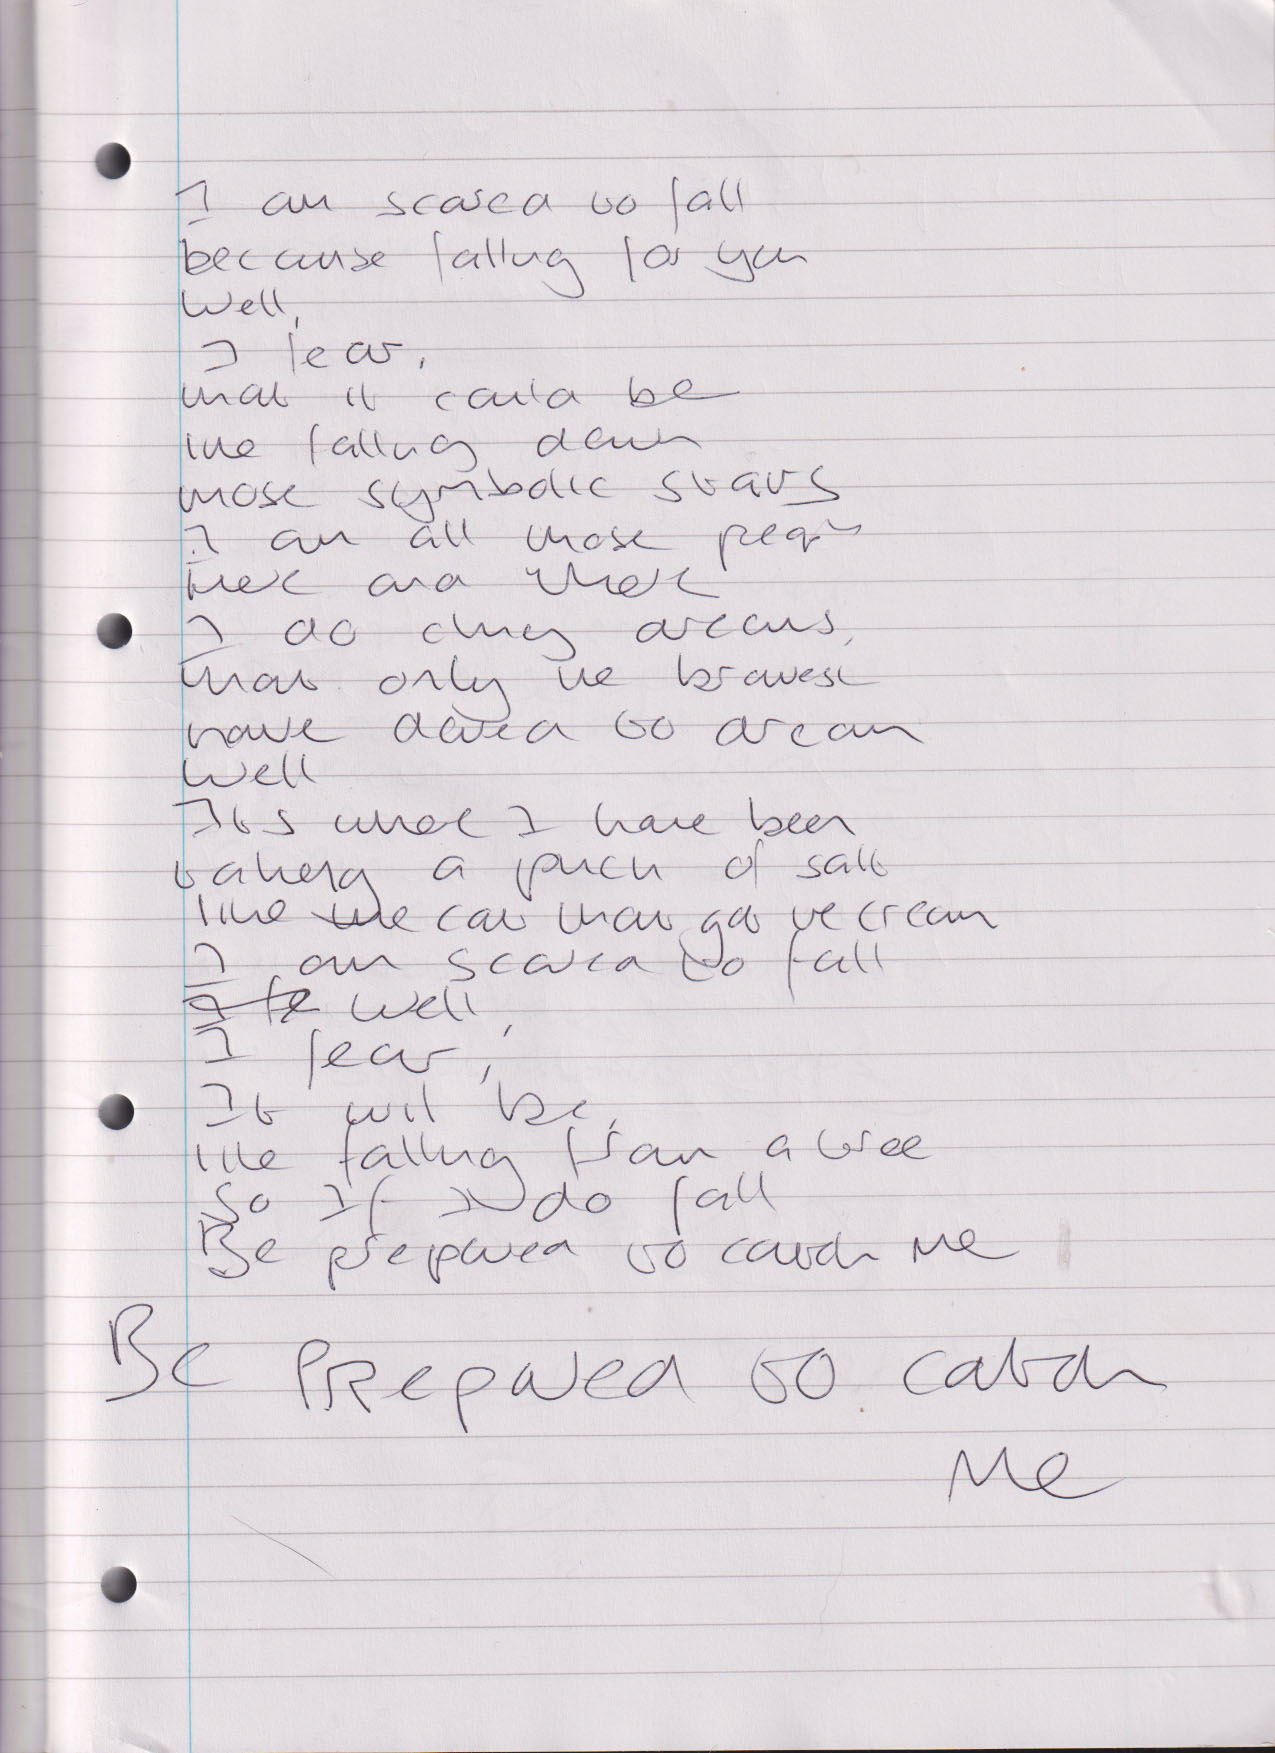 I am scared to fall
because falling for you
Well,
I fear,
that it could be
like falling down
those symbolic stairs
I am all those
here and there
I do dream dreams,
that only the bravest
have dared to dream
Well
Its what I have been
taking a pinch of salt
like the cat that got the cream
I am scared to fall
Well,
I fear,
It will be,
like falling from a tree
So If I do fall
Be prepared to catch me
Be Prepared to catch
Me